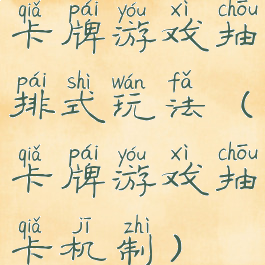 qiǎ pái yóu xì chōu
卡牌游戏抽
pái shì wán fǎ
排式玩法（
qiǎ pái yóu xì chōu
卡牌游戏抽
qiǎ jī zhì
卡机制）